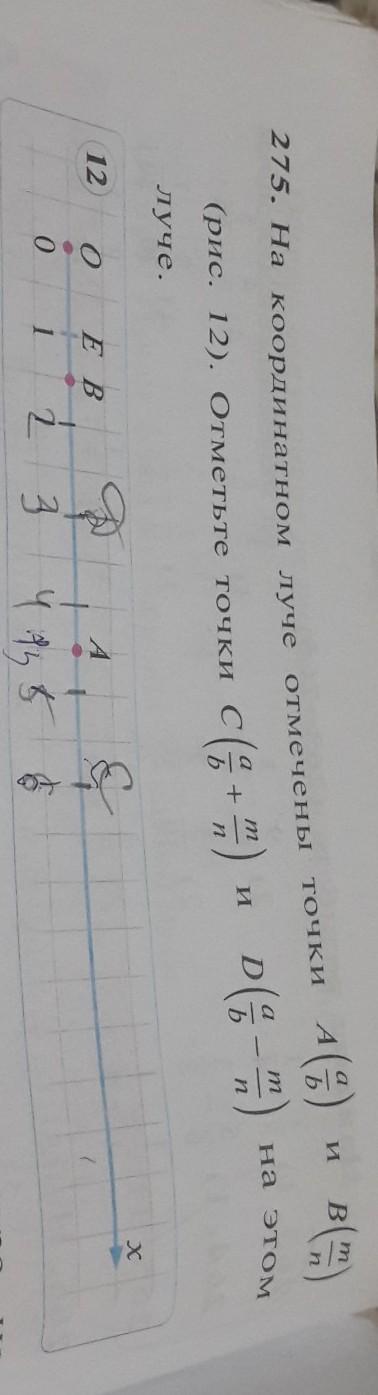 275. На координатном луче отмечены точки A(a/b) и B(m/n)
(рис. 12). Отметьте точки C(a/b + m/n) и D(a/b − m/n) на этом
луче.
12 O E B D A C x
0 1 2 3 4 5 6